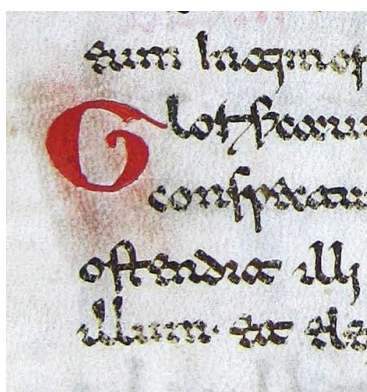 eum in timor
Glorificaui
conspectu
ostendit illi
illum. et ele